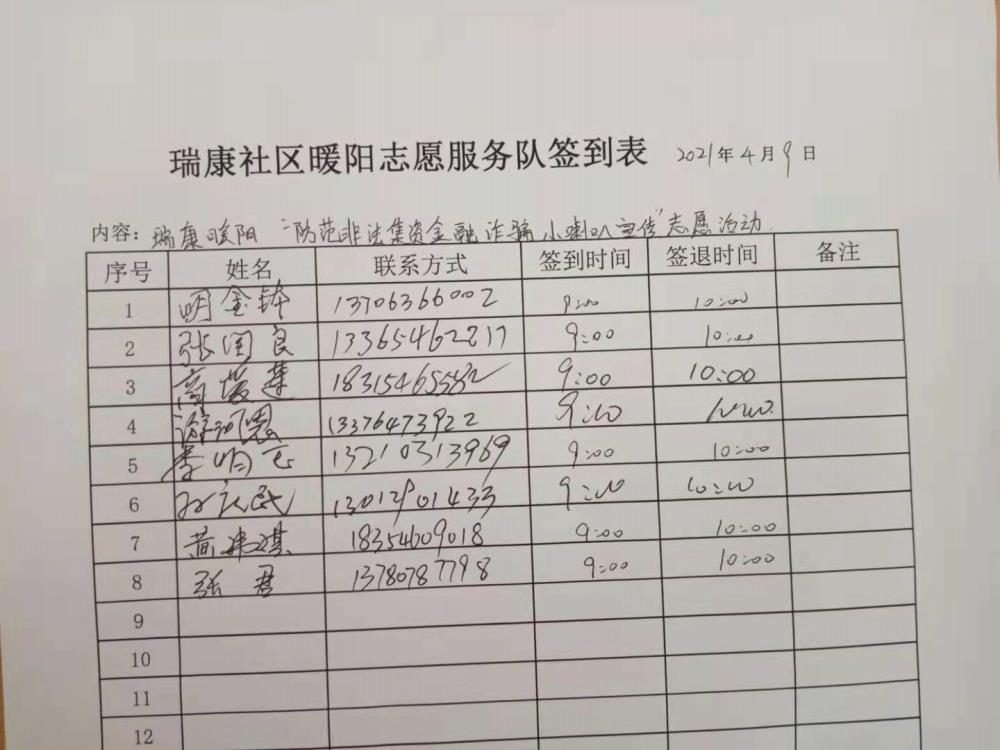 瑞康社区暖阳志愿服务队签到表 2021年4月9日
内容：瑞康暖阳“防范非法集资金融诈骗小喇叭宣传”志愿活动
序号 姓名 联系方式 签到时间 签退时间 备注
1 明金钟 13706366002 9:00 10:00
2 张国良 13365462217 9:00 10:00
3 高 18315465582 9:00 10:00
4 13376473922 9:00 10:00
5 李明 13210313969 9:00 10:00
6 孙 民 13012901433 9:00 10:00
7 黄 琪 18354609018 9:00 10:00
8 张君 13780787798 9:00 10:00
9
10
11
12